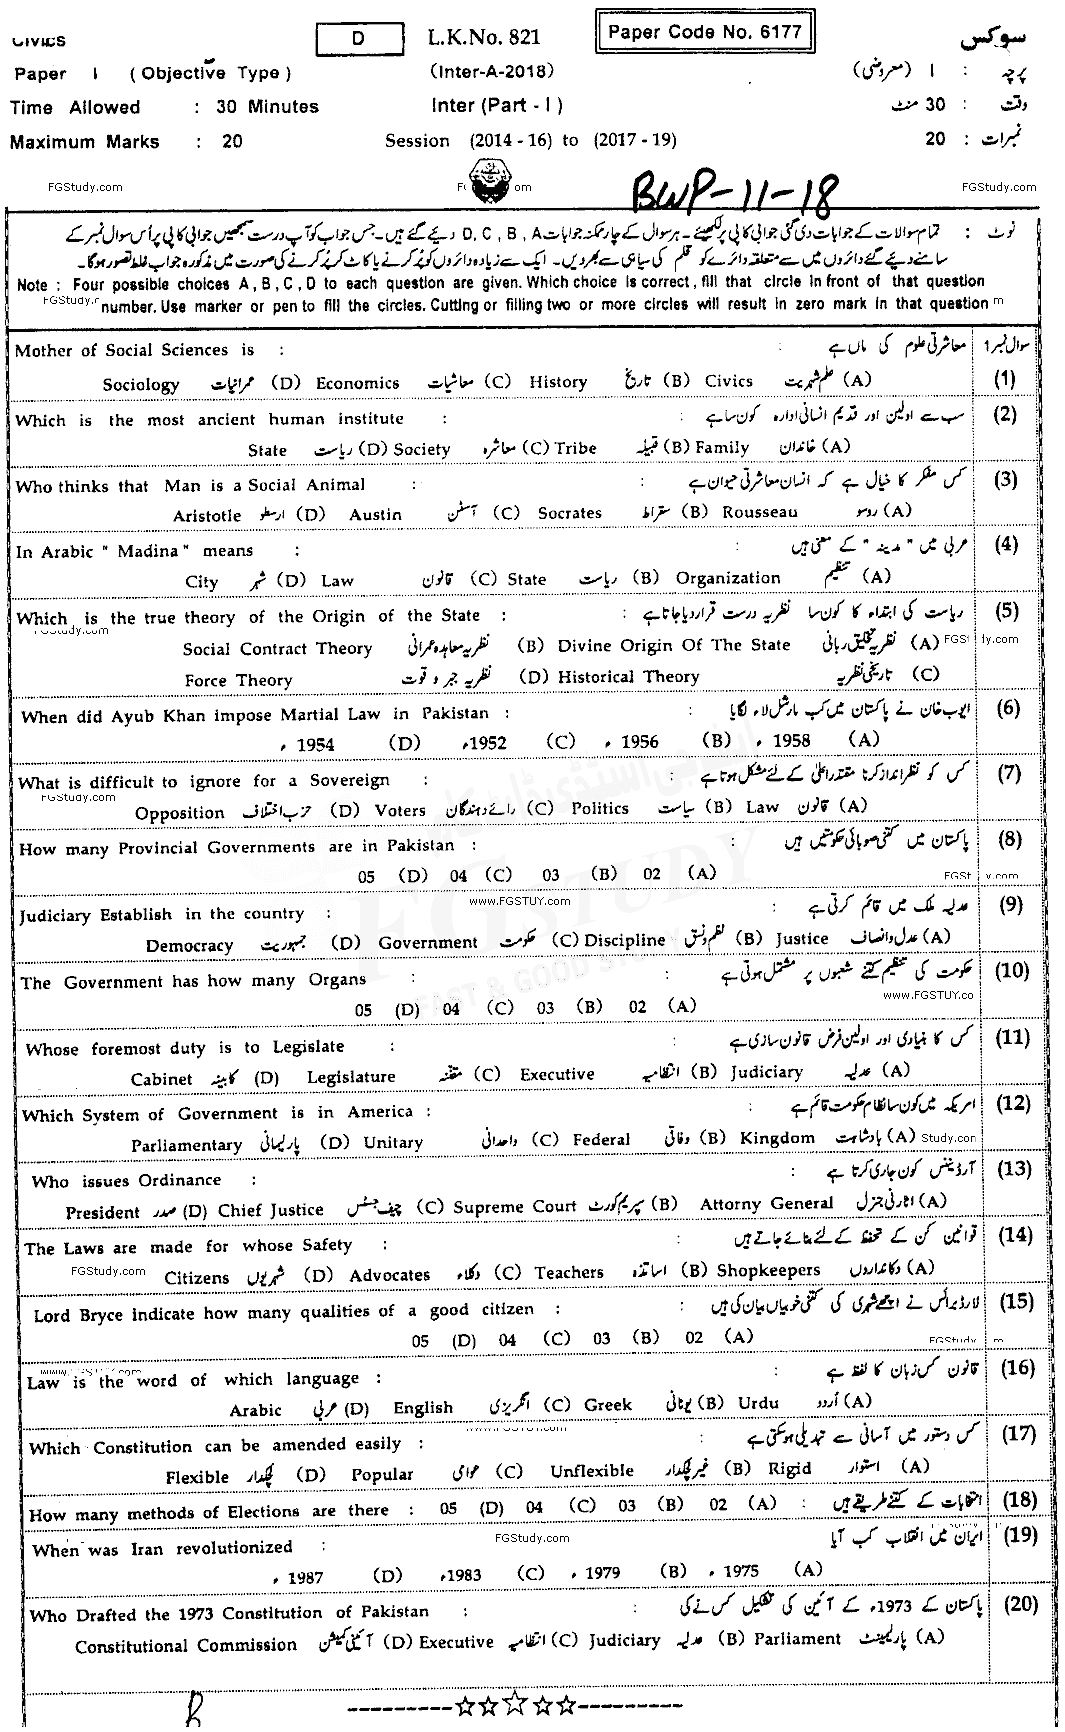 CIVICS D L.K.No. 821 Paper Code No. 6177 سوکس
Paper I (Objective Type) (Inter-A-2018) پرچہ : I (معروضی)
Time Allowed : 30 Minutes Inter (Part - I) وقت : 30 منٹ
Maximum Marks : 20 Session (2014 - 16) to (2017 - 19) نمبرات : 20
FGStudy.com BWP-11-18 FGStudy.com
نوٹ : تمام سوالات کے جوابات دی گئی جوابی کاپی پر لکھیئے ۔ ہر سوال کے چار ممکنہ جوابات D, C, B, A دیئے گئے ہیں۔ جس جواب کو آپ درست سمجھیں جوابی کاپی پر اُس سوال نمبر کے
سامنے دیئے گئے دائروں میں سے متعلقہ دائرے کو قلم کی سیاہی سے بھر دیں۔ ایک سے زیادہ دائروں کو پُر کرنے یا کاٹ کر پُر کرنے کی صورت میں مذکورہ جواب غلط تصور ہوگا۔
Note : Four possible choices A, B, C, D to each question are given. Which choice is correct, fill that circle in front of that question
number. Use marker or pen to fill the circles. Cutting or filling two or more circles will result in zero mark in that question
Mother of Social Sciences is : معاشرتی علوم کی ماں ہے : سوال نمبر 1
Sociology عمرانیات (D) Economics معاشیات (C) History تاریخ (B) Civics علم شہریت (A) (1)
Which is the most ancient human institute : سب سے اولین اور قدیم انسانی ادارہ کون سا ہے : (2)
State ریاست (D) Society معاشرہ (C) Tribe قبیلہ (B) Family خاندان (A)
Who thinks that Man is a Social Animal : کس مفکر کا خیال ہے کہ انسان معاشرتی حیوان ہے : (3)
Aristotle ارسطو (D) Austin آسٹن (C) Socrates سقراط (B) Rousseau روسو (A)
In Arabic " Madina " means : عربی میں "مدینہ" کے معنی ہیں : (4)
City شہر (D) Law قانون (C) State ریاست (B) Organization تنظیم (A)
Which is the true theory of the Origin of the State : ریاست کی ابتداء کا کون سا نظریہ درست قرار دیا جاتا ہے : (5)
Social Contract Theory نظریہ معاہدہ عمرانی (B) Divine Origin Of The State نظریہ تخلیق ربانی (A)
Force Theory نظریہ جبر و قوت (D) Historical Theory تاریخی نظریہ (C)
When did Ayub Khan impose Martial Law in Pakistan : ایوب خان نے پاکستان میں کب مارشل لاء لگایا : (6)
1954ء (D) 1952ء (C) 1956ء (B) 1958ء (A)
What is difficult to ignore for a Sovereign : کس کو نظر انداز کرنا مقتدر اعلیٰ کے لئے مشکل ہوتا ہے : (7)
Opposition حزب اختلاف (D) Voters رائے دہندگان (C) Politics سیاست (B) Law قانون (A)
How many Provincial Governments are in Pakistan : پاکستان میں کتنی صوبائی حکومتیں ہیں : (8)
05 (D) 04 (C) 03 (B) 02 (A)
www.FGSTUY.com
Judiciary Establish in the country : عدلیہ ملک میں قائم کرتی ہے : (9)
Democracy جمہوریت (D) Government حکومت (C) Discipline نظم و نسق (B) Justice عدل و انصاف (A)
The Government has how many Organs : حکومت کی تنظیم کتنے شعبوں پر مشتمل ہوتی ہے : (10)
05 (D) 04 (C) 03 (B) 02 (A)
Whose foremost duty is to Legislate : کس کا بنیادی اور اولین فرض قانون سازی ہے : (11)
Cabinet کابینہ (D) Legislature مقننہ (C) Executive انتظامیہ (B) Judiciary عدلیہ (A)
Which System of Government is in America : امریکہ میں کون سا نظام حکومت قائم ہے : (12)
Parliamentary پارلیمانی (D) Unitary واحدانی (C) Federal وفاقی (B) Kingdom بادشاہت (A)
Who issues Ordinance : آرڈیننس کون جاری کرتا ہے : (13)
President صدر (D) Chief Justice چیف جسٹس (C) Supreme Court سپریم کورٹ (B) Attorny General اٹارنی جنرل (A)
The Laws are made for whose Safety : قوانین کن کے تحفظ کے لئے بنائے جاتے ہیں : (14)
FGStudy.com Citizens شہریوں (D) Advocates وکلاء (C) Teachers اساتذہ (B) Shopkeepers دکانداروں (A)
Lord Bryce indicate how many qualities of a good citizen : لارڈ برائس نے اچھے شہری کی کتنی خوبیاں بیان کی ہیں : (15)
05 (D) 04 (C) 03 (B) 02 (A)
Law is the word of which language : قانون کس زبان کا لفظ ہے : (16)
Arabic عربی (D) English انگریزی (C) Greek یونانی (B) Urdu اُردو (A)
Which Constitution can be amended easily : کس دستور میں آسانی سے تبدیلی ہو سکتی ہے : (17)
Flexible لچکدار (D) Popular عوامی (C) Unflexible غیر لچکدار (B) Rigid استوار (A)
How many methods of Elections are there : 05 (D) 04 (C) 03 (B) 02 (A) : انتخابات کے کتنے طریقے ہیں (18)
FGStudy.com
When was Iran revolutionized : ایران میں انقلاب کب آیا (19)
1987ء (D) 1983ء (C) 1979ء (B) 1975ء (A)
Who Drafted the 1973 Constitution of Pakistan : پاکستان کے 1973ء کے آئین کی تشکیل کس نے کی : (20)
Constitutional Commission آئینی کمیشن (D) Executive انتظامیہ (C) Judiciary عدلیہ (B) Parliament پارلیمینٹ (A)
B